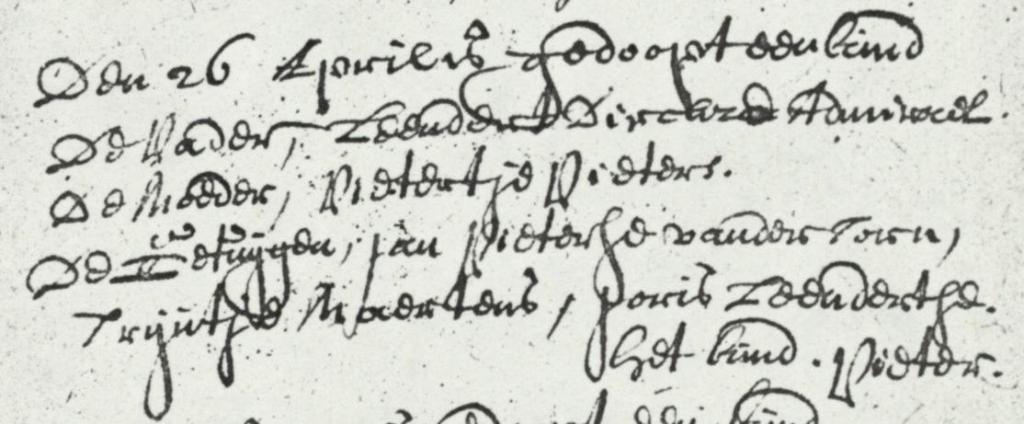 Den 26 Aprilis gedoopt een kind
De Vader, Leendert Dircksz Admirael.
De Moeder, Pietertje Pieters.
De Getuijgen, Jan Pieterse vander Torn,
Trijntje Maertens, Joris Leenderthe.
Het kind. Pieter.
een kind